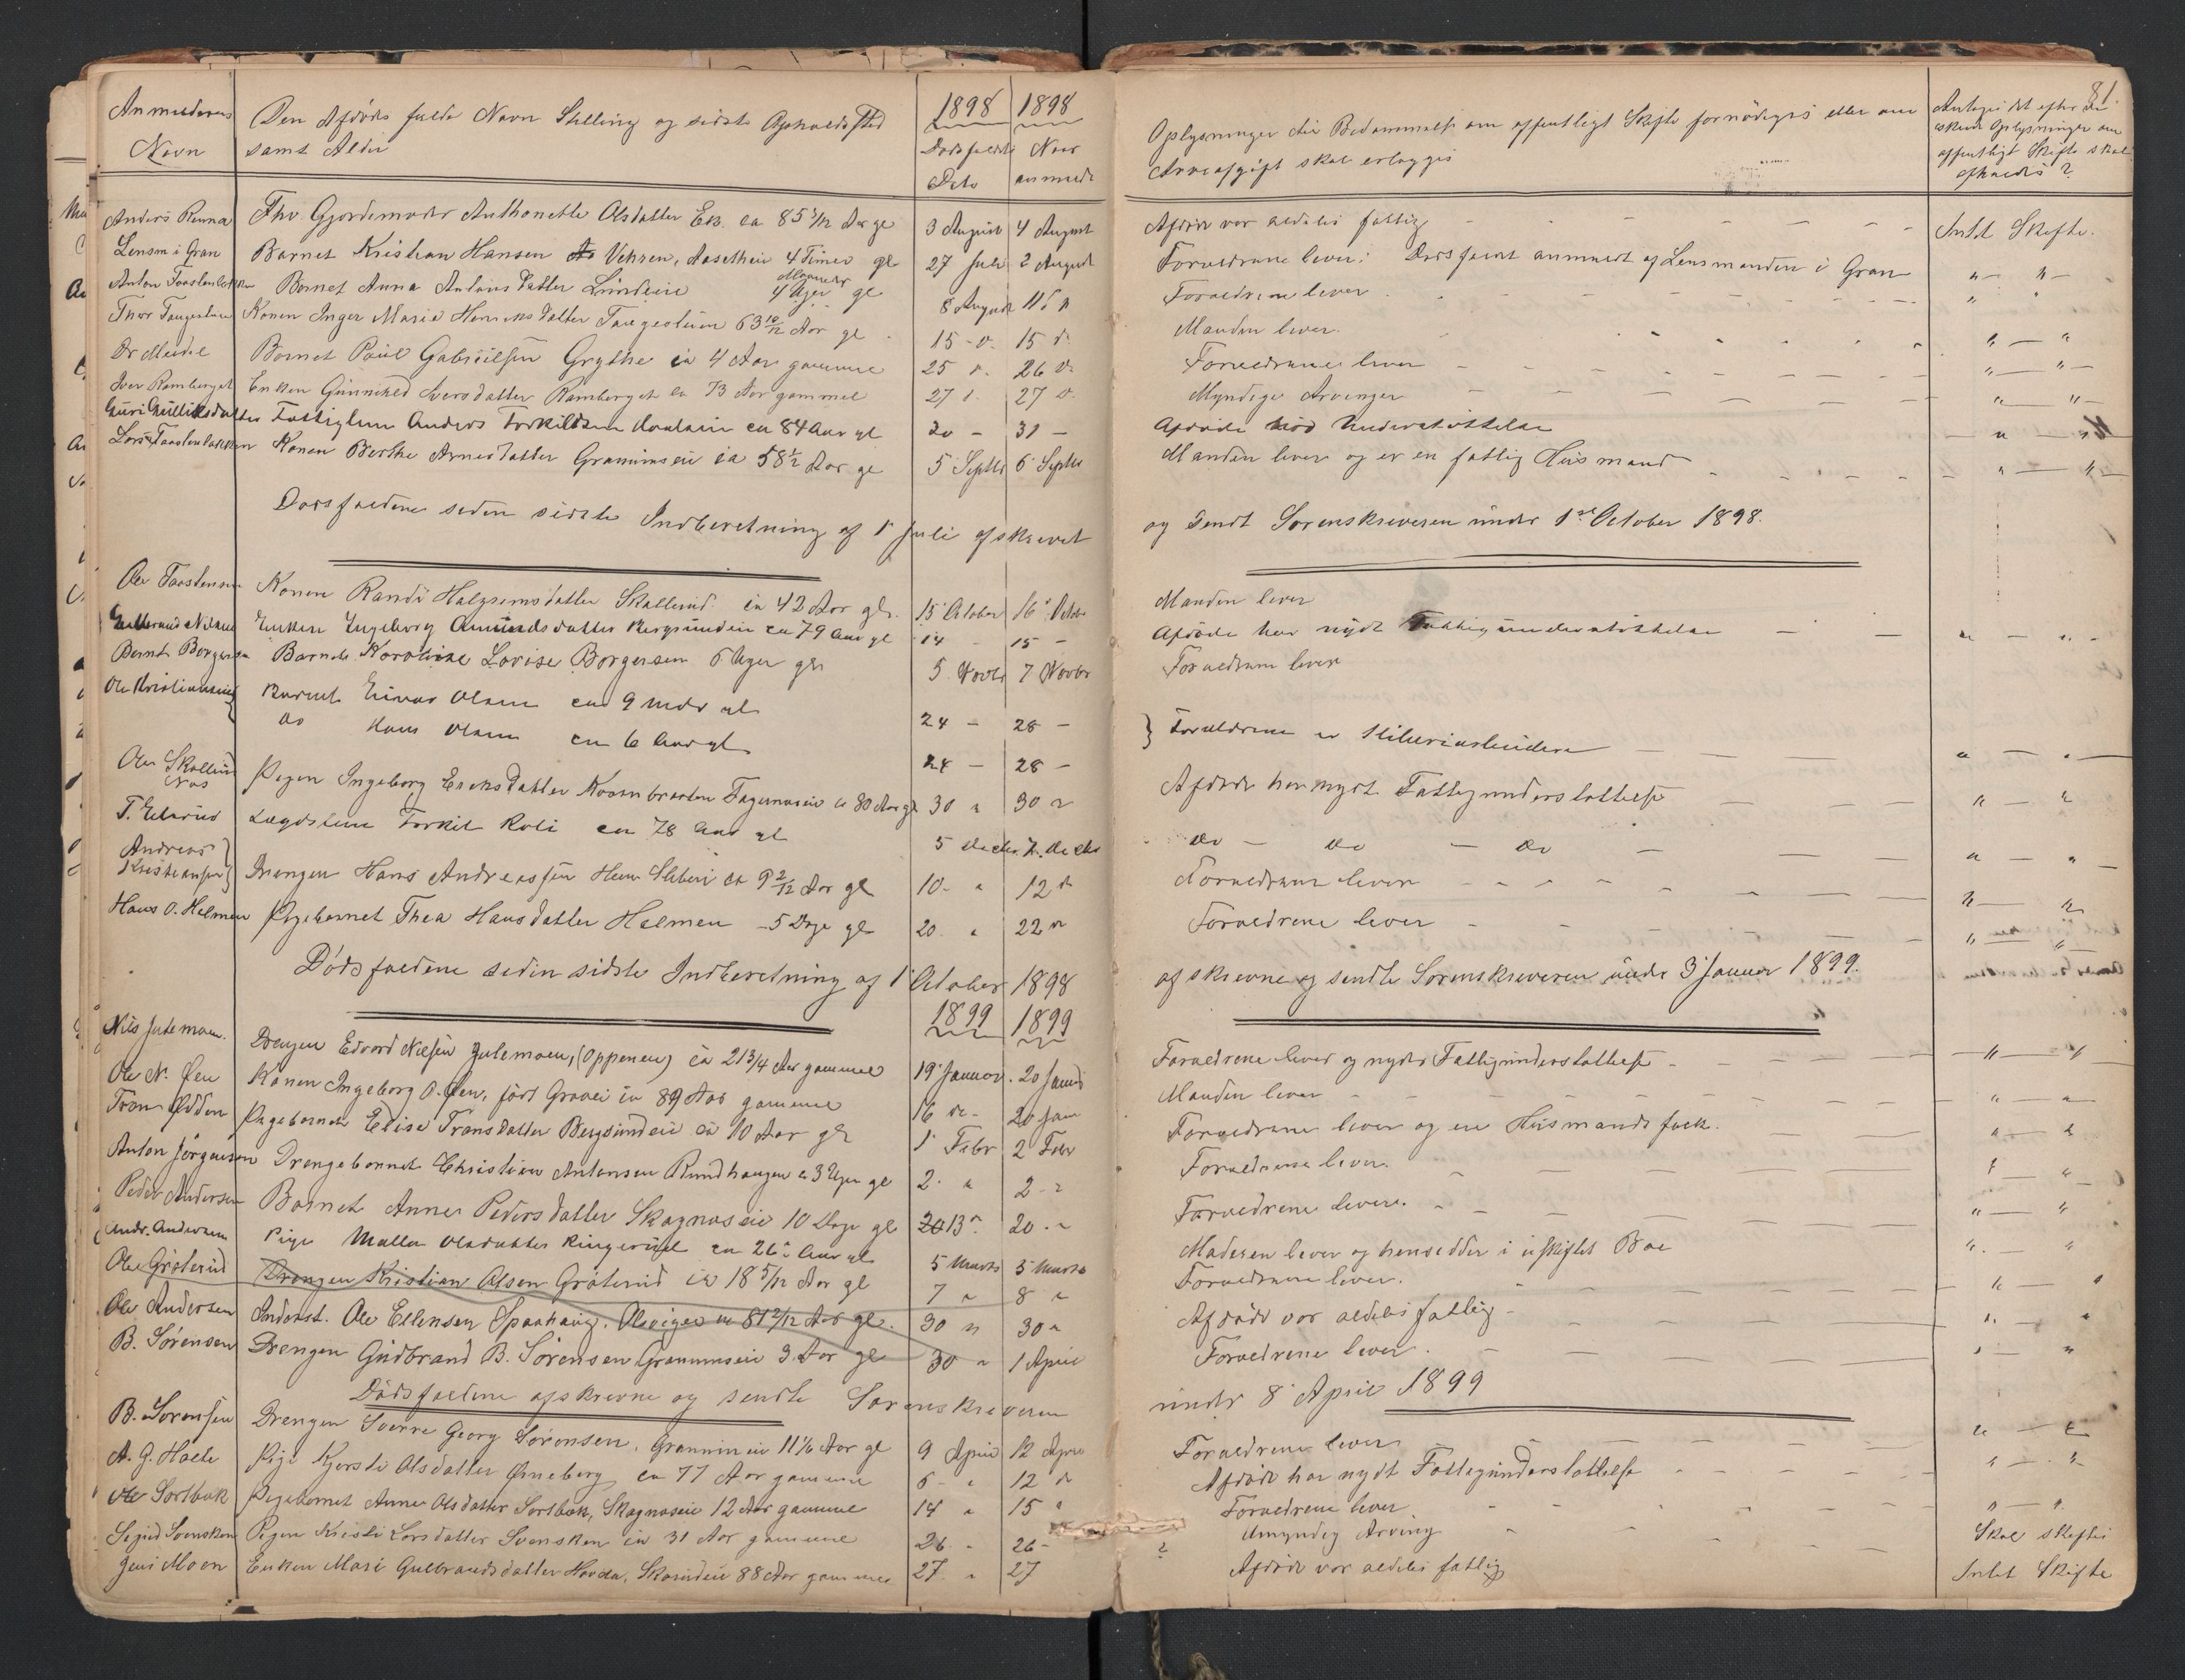 81.
Anmelderens Navn | Den Afdødes fulde Navn Stilling og sidste Opholdssted samt Alder | 1898 Dødsfaldets Dato | 1898 Naar anmeldt | Oplysninger til Bedømmelse om offentligt Skifte fornødiges eller om Arveafgift skal erlægges | Antages det efter de Oplysninger om offentligt Skifte skal afholdes?
Anders Renna | Fhv Gjordemoder Anthonette Olsdatter Ek. ca 85 3/12 Aar gl | 3 August | 4 August | Afdøde var aldeles fattig | Intet Skifte.
Lensm i Gran | Barnet Kristian Hansen Vehren, Aasetheie 4 Timer gl | 27 Juli | 2 August | Forældrene lever: Dødsfaldet anmeldt af Lensmanden i Gran | " — "
Anton | Barnet Anna Antonsdatter Lundeie 4 Maaneder gl | 8 August | 11 | Forældrene lever | " "
Thor Taugestuen | Konen Inger Marie Henriksdatter Taugestuen 63 10/12 Aar gl | 15 d. | 15 d. | Manden lever. | " — "
Dr Meidel | Barnet Paul Gabrielsen Grythe ca 4 Aar gammel | 25 d. | 26 d. | Forældrene lever | " — "
Iver Ramberget | Enken Gunnhild Iversdatter Ramberget ca 73 Aar gammel | 27 d. | 27 d. | Myndige Arvinger | " — "
Guri Gulliksdatter | Fattiglem Anders Torkildsen ca 84 Aar gl | 30 — | 31 — | Afdøde nød Understøttelse | " — "
Lars | Konen Berthe Arnesdatter Grannimseie ca 58 1/2 Aar gl | 5 Septbr | 6 Septbr | Manden lever og er en fattig Husmand | " — "
Dødsfaldene siden sidste Indberetning af 1 Juli afskrevet og sendt Sorenskriveren under 1ste October 1898.
Ole Taastensen | Konen Randi Halgrimsdatter Skallerud ca 42 Aar gl. | 15 October | 16 Octobr | Manden lever
Gulbrand Nilsen | Enken Ingeborg Amundsdatter Bergsundeie ca 79 Aar gl | 14 — | 15 — | Afdøde har nydt Fattigunderstøttelse | " — "
Bernt Borgersen | Barnet Karoline Lovise Borgersen 6 Uger gl | 5 Novbr | 7 Novbr | Forældrene lever
Ole Kristiansen | Barnet Einar Olsen ca 9 Mdr gl | 24 — | 28 — | } Forældrene er Sliberiarbeidere | " — "
do Hans Olsen ca 6 Aar gl | 24 — | 28 —
Ole Skallerud | Pigen Ingeborg Eriksdatter Kornbraaten Fagernæseie ca 80 Aar gl | 30 " | 30 " | Afdøde har nydt Fattigunderstøttelse | " — "
T. Elsrud | Lægdslem Torkil Roli ca 78 Aar gl | 5 Decbr. | 7. Decbr | do — do — do | " — "
Andreas Kristiansen } | Drengen Hans Andreassen Hen Sliberi ca 9 2/12 Aar gl | 10 " | 12 " | Forældrene lever | " "
Hans O. Helmen | Pigebarnet Thea Hansdatter Helmen 5 Dage gl | 20 " | 22 " | Forældrene lever | " — "
Dødsfaldene siden sidste Indberetning af 1 October 1898 afskrevne og sendte Sorenskriveren under 3 Januar 1899.
1899 | 1899
Nils Julemoen. | Drengen Edvard Nielsen Julemoen, (Oppenen) ca 21 3/4 Aar gammel | 19 Januar. | 20 Januar | Forældrene lever og nyder Fattigunderstøttelse | — " — "
Ole N. Øen | Konen Ingeborg O. Øen, født Gravei ca 89 Aar gammel | 16 de | 20 Jan | Manden lever | " — "
Tron Ødden | Pigebarnet Elise Tronsdatter Bergsundeie ca 10 Aar gl | 1 Febr | 2 Febr | Forældrene lever og ere Husmandsfolk. | " — "
Anton Jørgensen | Drengebarnet Christian Antonsen Rundhaugen ca 3 Uger gl | 2. " | 2 " | Forældrene lever. | " — "
Peder Andersen | Barnet Anne Pedersdatter Skagnæseie 10 Dage gl | 20 13 " | 20 " | Forældrene lever. | " — "
Andr. Andersen | Pige Malla Olsdatter Ringerud ca 26 Aar gl | 5 Marts | 5 Marts | Moderen lever og hensidder i uskiftet Bo | " "
Ole Grøterud | Drengen Kristian Olsen Grøterud ca 18 5/12 Aar gl | 7 " | 8 " | Forældrene lever. | " — "
Ole Andersen | Inderst. Ole Ellensen Spaahaug. ca 81 2/12 Aar gl. | 30 " | 30 " | Afdøde var aldeles fattig | " — "
B. Sørensen | Drengen Gudbrand B. Sørensen Grannimseie 3 Aar gl | 30 " | 1 April | Forældrene lever. | " — "
Dødsfaldene afskrevne og sendte Sorenskriveren under 8 April 1899
B. Sørensen | Drengen Sverre Georg Sørensen, Grannimseie 11 1/6 Aar gl | 9 April | 12 April | Forældrene lever | " — "
A. G. Holte | Pige Kjersti Olsdatter Ørneberg ca 77 Aar gammel | 6 " | 12 " | Afdøde har nydt Fattigunderstøttelse | " — "
Ole Sortbak | Pigebarnet Anne Olsdatter Sortbæk, Skagnæseie 12 Aar gammel | 14 " | 15 " | Forældrene lever | " — "
Sigrid Svensken | Pigen Kristi Larsdatter Svensken ca 31 Aar gammel | 26 " | 26 — | Umyndig Arving | Skal skiftes
Jens Moen | Enken Mari Gulbrandsdatter Hovda, 88 Aar gammel | 27 " | 27 | ? Afdøde var aldeles fattig | Intet Skifte